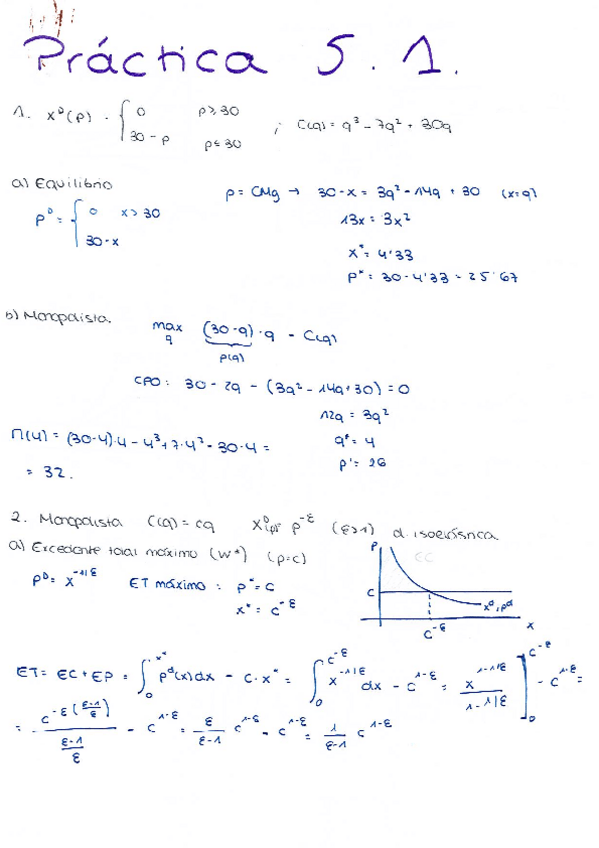 Práctica 5.1.
1. x^D(p) = { 0 p≥30 ; C(q) = q³ - 7q² + 30q
30-p p≤30
a) Equilibrio
p^D = { 0 x>30
30-x
p = CMg → 30-x = 3q² - 14q + 30 (x=q)
13x = 3x²
x* = 4'33
p* = 30 - 4'33 = 25'67
b) Monopolista.
max q (30-q)·q - C(q)
p(q)
CPO: 30 - 2q - (3q² - 14q + 30) = 0
12q = 3q²
q* = 4
p* = 26
Π(4) = (30-4)·4 - 4³ + 7·4² - 30·4 =
= 32.
2. Monopolista C(q) = cq x^D(p) = p^-ε (ε>1) d. isoelástica
a) Excedente total máximo (W*) (p=c)
p^D = x^-1/ε ET máximo: p* = c
x* = c^-ε
p
c
x^D, p^D
c^-ε
x
ET = EC + EP = ∫₀^x* p^d(x)dx - c·x* = ∫₀^c^-ε x^-1/ε dx - c^1-ε = x^1-1/ε / 1-1/ε ]₀^c^-ε - c^1-ε =
= c^-ε(ε-1/ε) / ε-1/ε - c^1-ε = ε/ε-1 c^1-ε - c^1-ε = 1/ε-1 c^1-ε